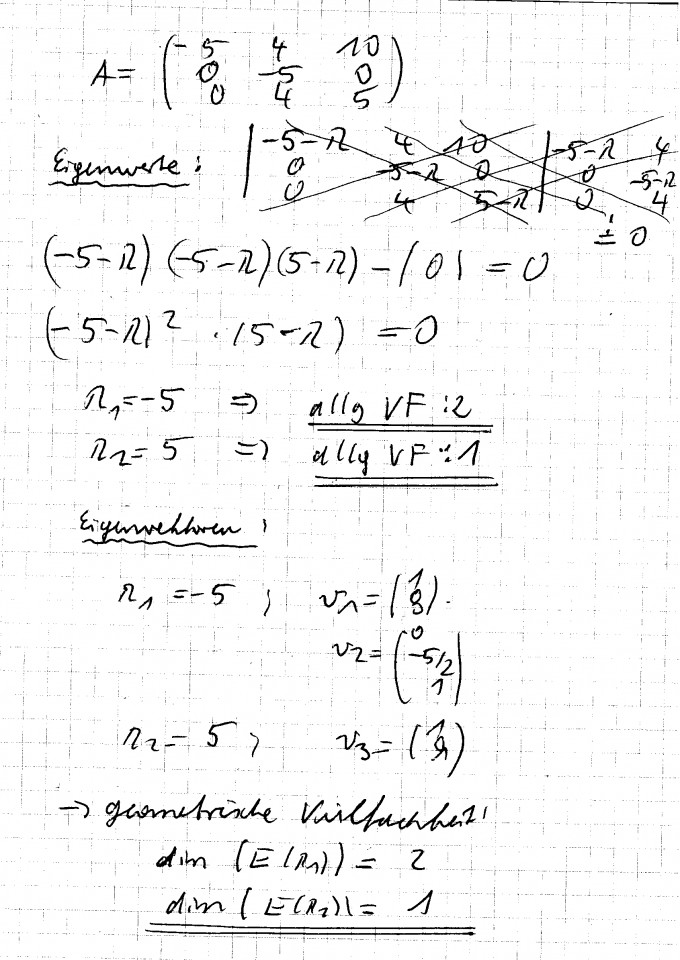 A = ( -5 4 10
0 -5 0
0 4 5 )
Eigenwerte: | -5-λ 4 10 | -5-λ 4
0 -5-λ 0 | 0 -5-λ
0 4 5-λ | 0 4
≐ 0
(-5-λ) (-5-λ)(5-λ) - (0) = 0
(-5-λ)² · (5-λ) = 0
λ₁ = -5 ⇒ allg VF : 2
λ₂ = 5 ⇒ allg VF : 1
Eigenvektoren :
λ₁ = -5 ; v₁ = ( 1 0 0 ) .
v₂ = ( 0 -5/2 1 )
λ₂ = 5 ; v₃ =
→ geometrische Vielfachheit:
dim (E(λ₁)) = 2
dim (E(λ₂)) = 1